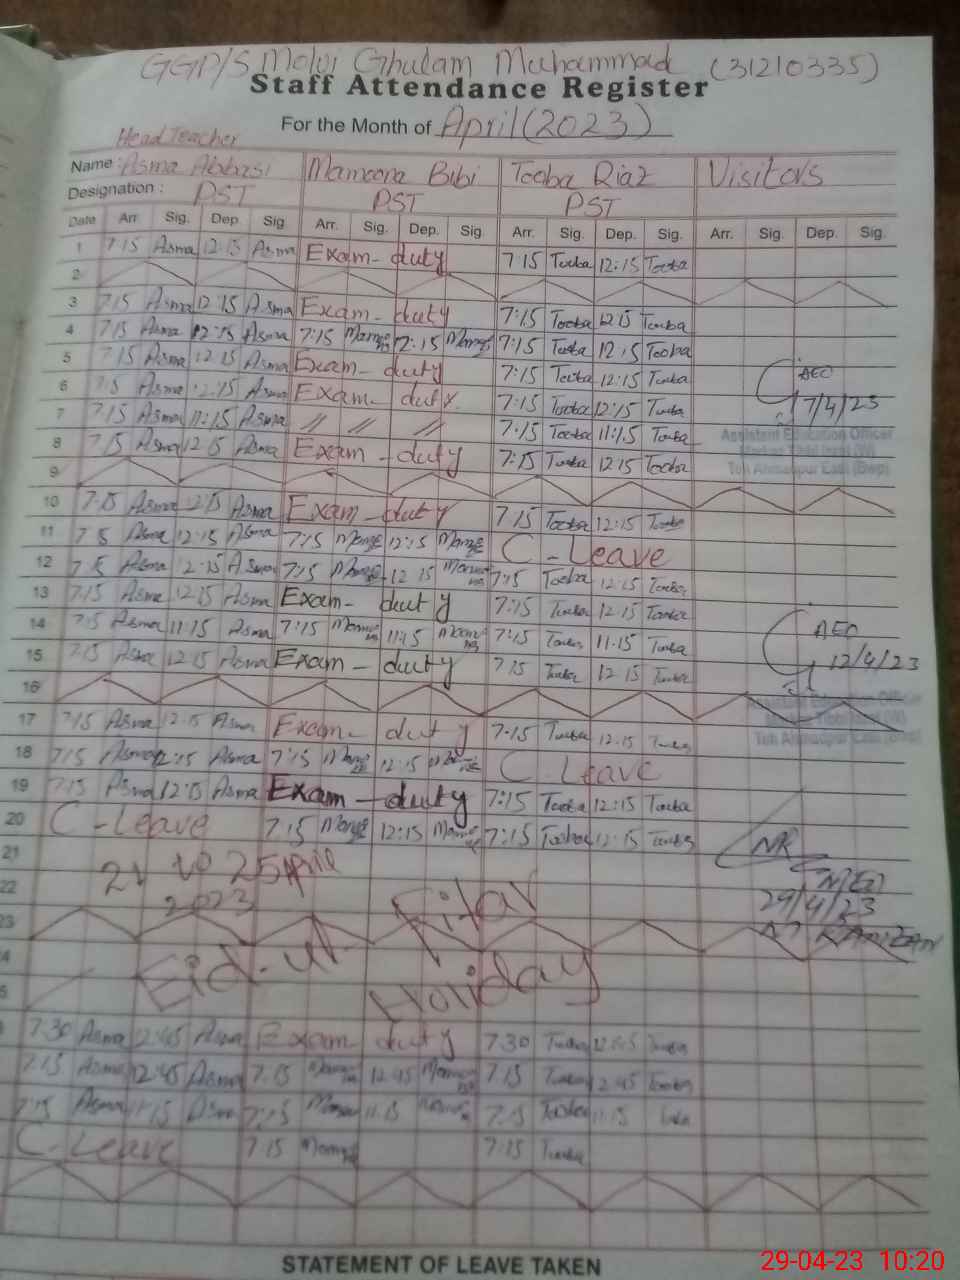 GGP/S Molvi Ghulam Muhammad (31210335)
Staff Attendance Register
For the Month of April (2023)
Head Teacher
Name : Asma Abbasi Mamoona Bibi Tooba Riaz Visitors
Designation : PST PST PST
Date Arr. Sig. Dep. Sig. Arr. Sig. Dep. Sig. Arr. Sig. Dep. Sig. Arr. Sig. Dep. Sig.
1 7:15 Asma 12:15 Asma Exam - duty 7:15 Tooba 12:15 Tooba
2
3 7:15 Asma 12:15 Asma Exam - duty 7:15 Tooba 12:15 Tooba
4 7:15 Asma 12:15 Asma 7:15 12:15 7:15 Tooba 12:15 Tooba
5 7:15 Asma 12:15 Asma Exam - duty 7:15 Tooba 12:15 Tooba
6 7:15 Asma 12:15 Asma Exam - duty 7:15 Tooba 12:15 Tooba
AEO
7/4/23
7 7:15 Asma 11:15 Asma // // // 7:15 Tooba 11:15 Tooba
Assistant Education Officer
8 7:15 Asma 12:15 Asma Exam - duty 7:15 Tooba 12:15 Tooba
Teh Ahmadpur East (Bwp)
9
10 7:15 Asma 12:15 Asma Exam - duty 7:15 Tooba 12:15 Tooba
11 7:15 Asma 12:15 Asma 7:15 12:15 C - Leave
12 7:15 Asma 12:15 Asma 7:15 12:15 7:15 Tooba 12:15 Tooba
13 7:15 Asma 12:15 Asma Exam - duty 7:15 Tooba 12:15 Tooba
14 7:15 Asma 11:15 Asma 7:15 11:15 7:15 Tooba 11:15 Tooba
AEO
12/4/23
15 7:15 Asma 12:15 Asma Exam - duty 7:15 Tooba 12:15 Tooba
16
Assistant Education Officer
17 7:15 Asma 12:15 Asma Exam duty 7:15 Tooba 12:15 Tooba
Teh Ahmadpur East (Bwp)
18 7:15 Asma 12:15 Asma 7:15 12:15 C. Leave
19 7:15 Asma 12:15 Asma Exam - duty 7:15 Tooba 12:15 Tooba
20 C - Leave 7:15 12:15 7:15 Tooba 12:15 Tooba
21 21 to 25 April
22 2023
29/4/23
23 Eid-ul-Fitar
Holiday
7:30 Asma 12:45 Asma Exam duty 7:30 Tooba 12:45 Tooba
7:15 Asma 12:45 Asma 7:15 12:45 7:15 Tooba 12:45 Tooba
7:15 Asma 11:15 Asma 7:15 11:15 7:15 Tooba 11:15 Tooba
C - Leave 7:15 7:15 Tooba
STATEMENT OF LEAVE TAKEN
29-04-23 10:20